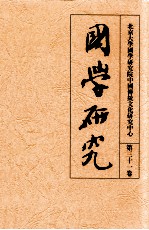 北京大學國學研究院中國傳統文化研究中心
第三十一卷
國學研究